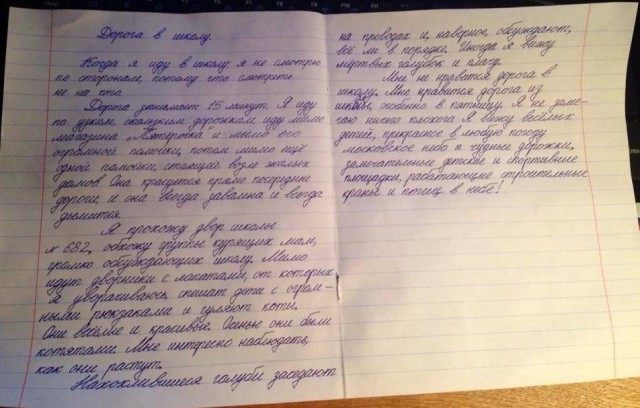 Дорога в школу.
Когда я иду в школу я не смотрю
по сторонам, потому что смотреть
не на что.
Дорога занимает 15 минут. Я иду
по узким скользким дорожкам, иду мимо
магазина "Пятёрочка" и мимо его
огромной помойки, потом мимо ещё
одной помойки, стоящей возле жилых
домов. Она красуется прямо посредине
дороги и она всегда завалена и всегда
дымится.
Я прохожу двор школы
№ 682, обхожу группы курящих мам,
громко обсуждающих школу. Мимо
идут дворники с лопатами, от которых
я уворачиваюсь, спешат дети с огром-
ными рюкзаками и гуляют коты.
Они весёлые и красивые. Осенью они были
котятами. Мне интересно наблюдать,
как они растут.
Нахохлившиеся голуби заседают
на проводах и, наверное, обсуждают,
всё ли в порядке. Иногда я вижу
мёртвых голубей и плачу.
Мне не нравится дорога в
школу. Мне нравится дорога из
школы, особенно в пятницу. Я не заме-
чаю ничего плохого. Я вижу весёлых
детей, прекрасное в любую погоду
московское небо и чудные дорожки,
замечательные детские и спортивные
площадки, работающие строительные
краны и птиц в небе!